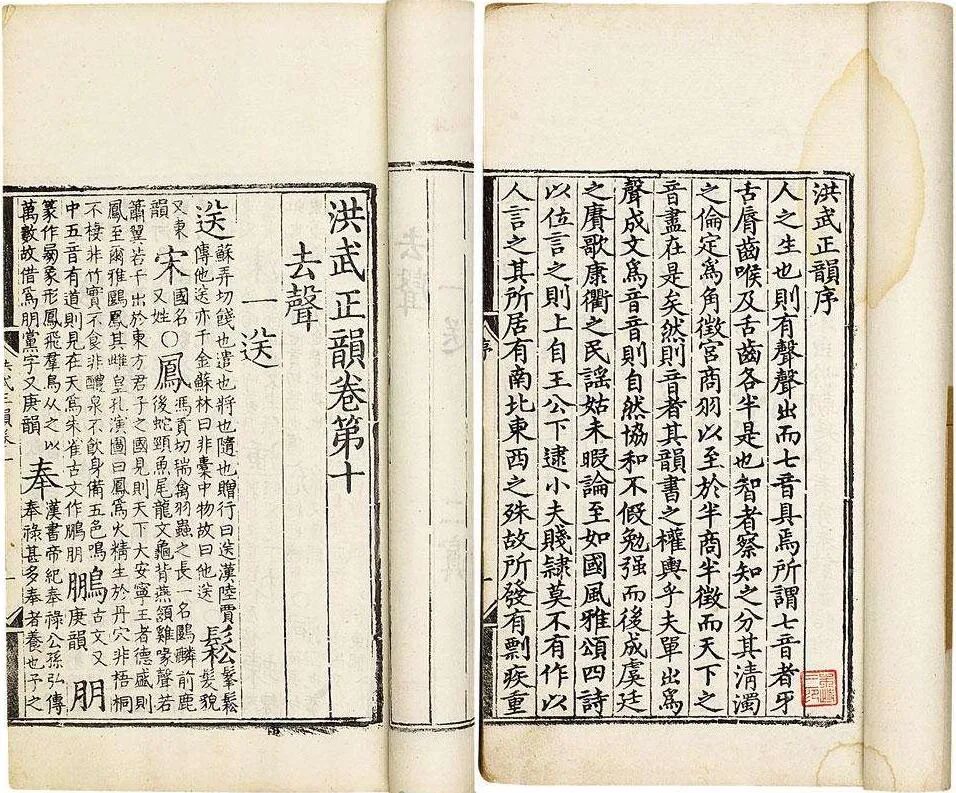 洪武正韻序
人之生也則有聲聲出而七音具焉所謂七音者牙
舌脣齒喉及舌齒各半是也智者察知之分其清濁
之倫定爲角徵宮商羽以至於半商半徵而天下之
音盡在是矣然則音者其韻書之權輿乎夫單出爲
聲成文爲音音則自然協和不假勉强而後成虞廷
之賡歌康衢之民謠姑未暇論至如國風雅頌四詩
以位言之則上自王公下逮小夫賤隸莫不有作以
人言之其所居有南北東西之殊故所發有剽疾重
序
洪武正韻卷第十
去聲
一送
送蘇弄切餞也遣也將也隨也贈行曰送漢陸賈傳他送亦千金蘇林曰非橐中物故曰他送鬆鬆髮貌
又東韻宋國名又姓○鳳馮貢切瑞禽羽蟲之長一名鶠麟前鹿後蛇頸魚尾龍文龜背燕頷雞喙聲若
簫翼若干出於東方君子之國見則天下大安寧王者德盛則鳳至爾雅鶠鳳其雌皇孔演圖曰鳳爲火精生於丹穴非梧桐
不棲非竹實不食非醴泉不飲身備五色鳴中五音有道則見在天爲朱雀古文作鵬朋鵬古文又庚韻朋
篆作象形鳳飛羣鳥從之以萬數故借爲朋黨字又庚韻奉漢書帝紀奉祿公孫弘傳奉祿甚多奉者養也子之